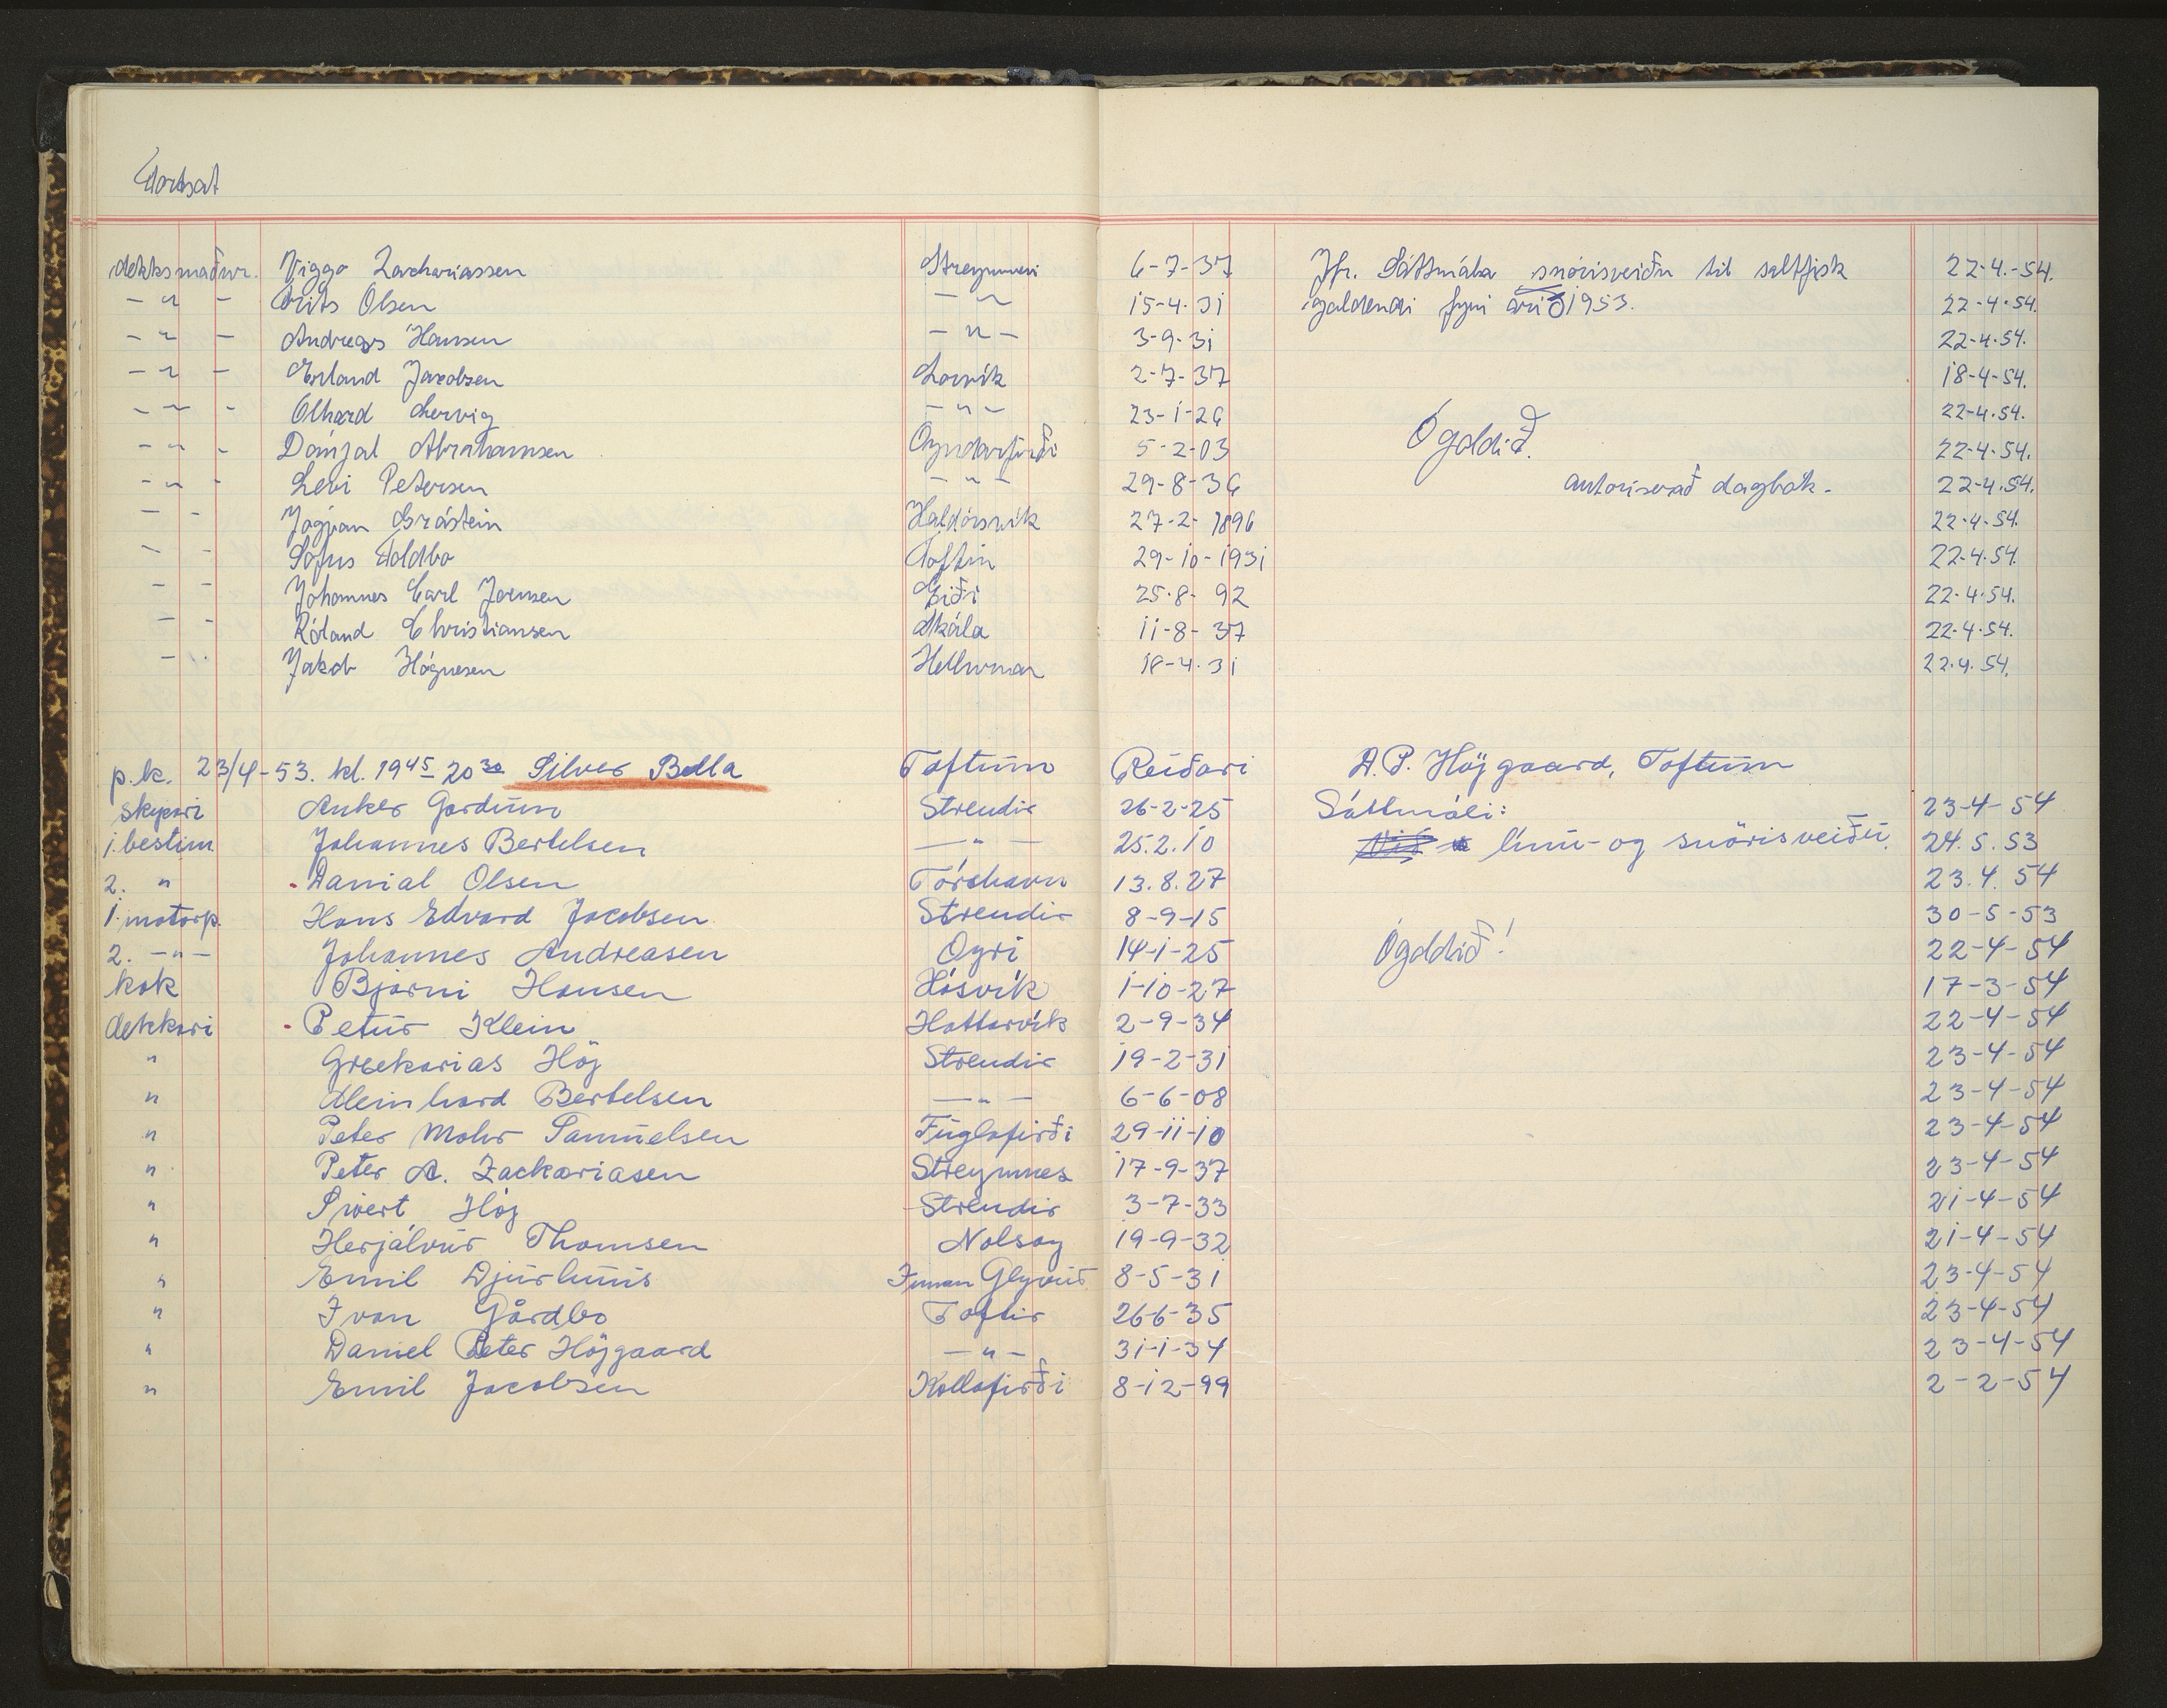 Fortsat
dekksmaður. Viggo Zachariassen Streymnesi 6-7-37 Jfr. Sáttmála snørisveiðu til saltfisk 22-4.-54.
- " - Frits Olsen - " 15-4-31 galdandi fyri árið 1953. 22-4-54.
- " - Andreas Hansen - " - 3-9-31 22-4-54.
- " - Erland Jacobsen Lorvík 2-7-37 18-4-54.
- " - Olhard - " - 23-1-26 22-4-54.
- " - Dánjal Abrahamsen Oyndarfirði 5-2-03 Ógoldið. 22-4-54.
- " - Levi Petersen - " - 29-8-36 autoriserað dagbók. 22-4-54.
- - Jógvan Grástein Haldórsvík 27-2-1896 22-4-54.
- - Sofus Toldbo Toftir 29-10-1931 22-4-54.
- - Johannes Carl Joensen Eiði 25-8-92 22-4-54.
- - Róland Christiansen Skála 11-8-37 22-4-54.
- Jakob Høgnesen Hellunar 18-4-31 22.4.54.
p.k. 23/4-53. kl. 19⁴⁵-20³⁰ Silver Bella Toftum Reiðari A.P. Højgaard, Toftum
skipari Anker Gardum Strendir 26-2-25 Sáttmáli: 23-4-54
1. bestim Johannes Bertelsen - " - 25.2.10 línu- og snørisveiðu. 24.5.53
2. " Danial Olsen Tórshavn 13.8.27 23.4.54
1. motorp. Hans Edvard Jacobsen Strendir 8-9-15 30-5-53
2. - " - Johannes Andreasen Oyri 14-1-25 Ógoldið! 22-4-54
kok Bjarni Hansen Hósvík 1-10-27 17-3-54
dekkari Petur Klein Hattarvík 2-9-34 22-4-54
" Greekarias Høj Strendir 19-2-31 23-4-54
" Meinhard Bertelsen - " - 6-6-08 23-4-54
" Peter Mohr Samuelsen Fuglafirði 29-11-10 23-4-54
" Peter A. Zackariasen Streymnes 17-9-37 23-4-54
" Sivert Høj Strendir 3-7-33 21-4-54
" Herjálvur Thomsen Nolsoy 19-9-32 21-4-54
" Emil Djurhuus Innan Glyvur 8-5-31 23-4-54
" Ivan Gårdbo Toftir 26-6-35 23-4-54
" Daniel Peter Højgaard - " - 31-1-34 23-4-54
" Emil Jacobsen Kollafirði 8-12-99 2-2-54